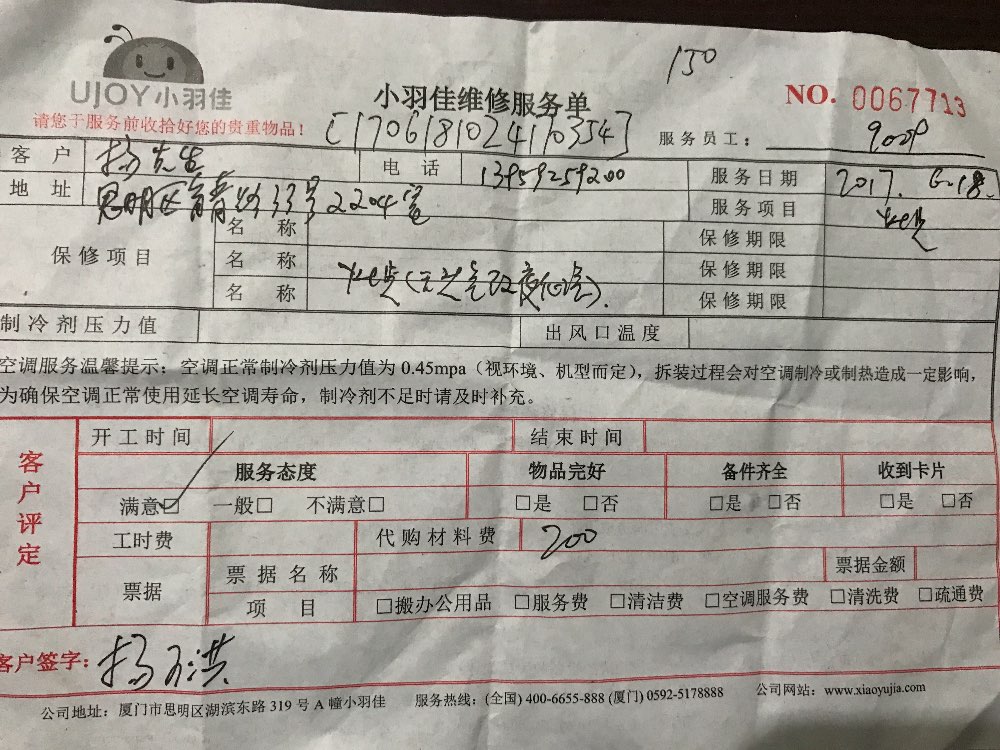 150
UJOY小羽佳
小羽佳维修服务单
NO. 0067713
请您于服务前收拾好您的贵重物品！
[170618102410354]
服务员工： 9009
客户 杨先生 电话 13959259200 服务日期 2017. 6.18.
地址 思明区 33号2204室 服务项目
保修项目 名称 保修期限
名称 保修期限
名称 保修期限
制冷剂压力值 出风口温度
空调服务温馨提示：空调正常制冷剂压力值为 0.45mpa（视环境、机型而定），拆装过程会对空调制冷或制热造成一定影响，
为确保空调正常使用延长空调寿命，制冷剂不足时请及时补充。
客户评定
开工时间 结束时间
服务态度 物品完好 备件齐全 收到卡片
满意☑ 一般□ 不满意□ □是 □否 □是 □否 □是 □否
工时费 代购材料费 200
票据 票据名称 票据金额
项目 □搬办公用品 □服务费 □清洁费 □空调服务费 □清洗费 □疏通费
客户签字：
公司地址：厦门市思明区湖滨东路 319 号 A 幢小羽佳 服务热线：(全国) 400-6655-888 (厦门) 0592-5178888 公司网站：www.xiaoyujia.com